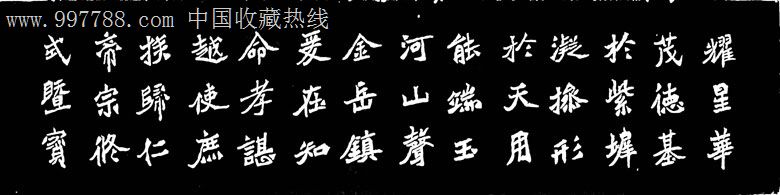 www.997788.com 中国收藏热线
耀星華
茂德基
於紫墀
凝操形
於天用
能端玉
河山聲
金岳鎮
爰在知
命孝諶
越使庶
揆歸仁
帝宗攸
式暨寶